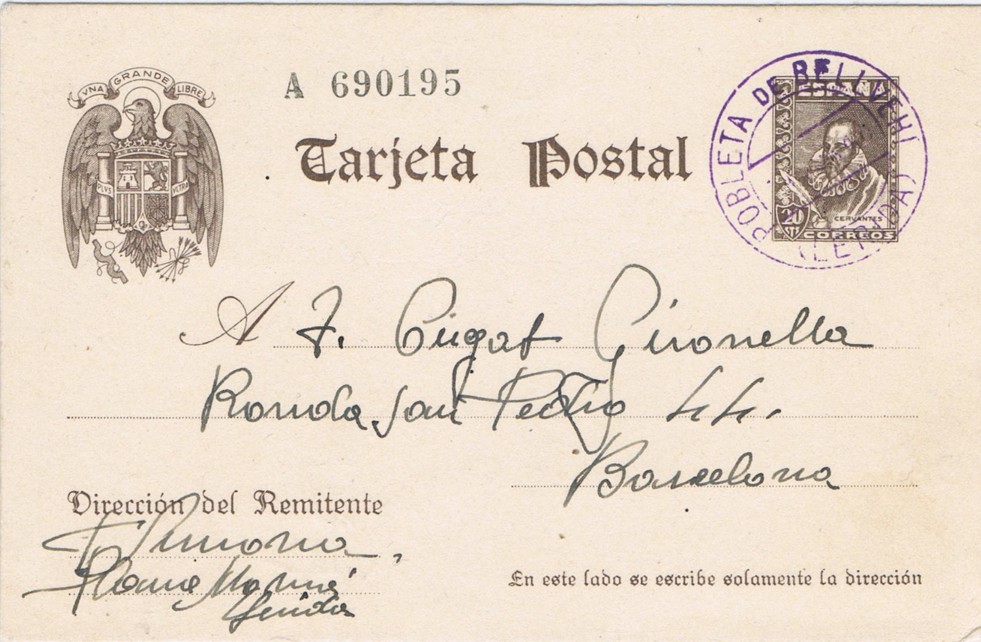 VNA GRANDE LIBRE
PLVS VLTRA
A 690195
Tarjeta Postal
POBLETA DE BELLVEHI
(LERIDA)
20
CERVANTES
CORREOS
A F. Cugat Gironella
Ronda San Pedro 44.
Barcelona
Dirección del Remitente
Lerida
En este lado se escribe solamente la dirección